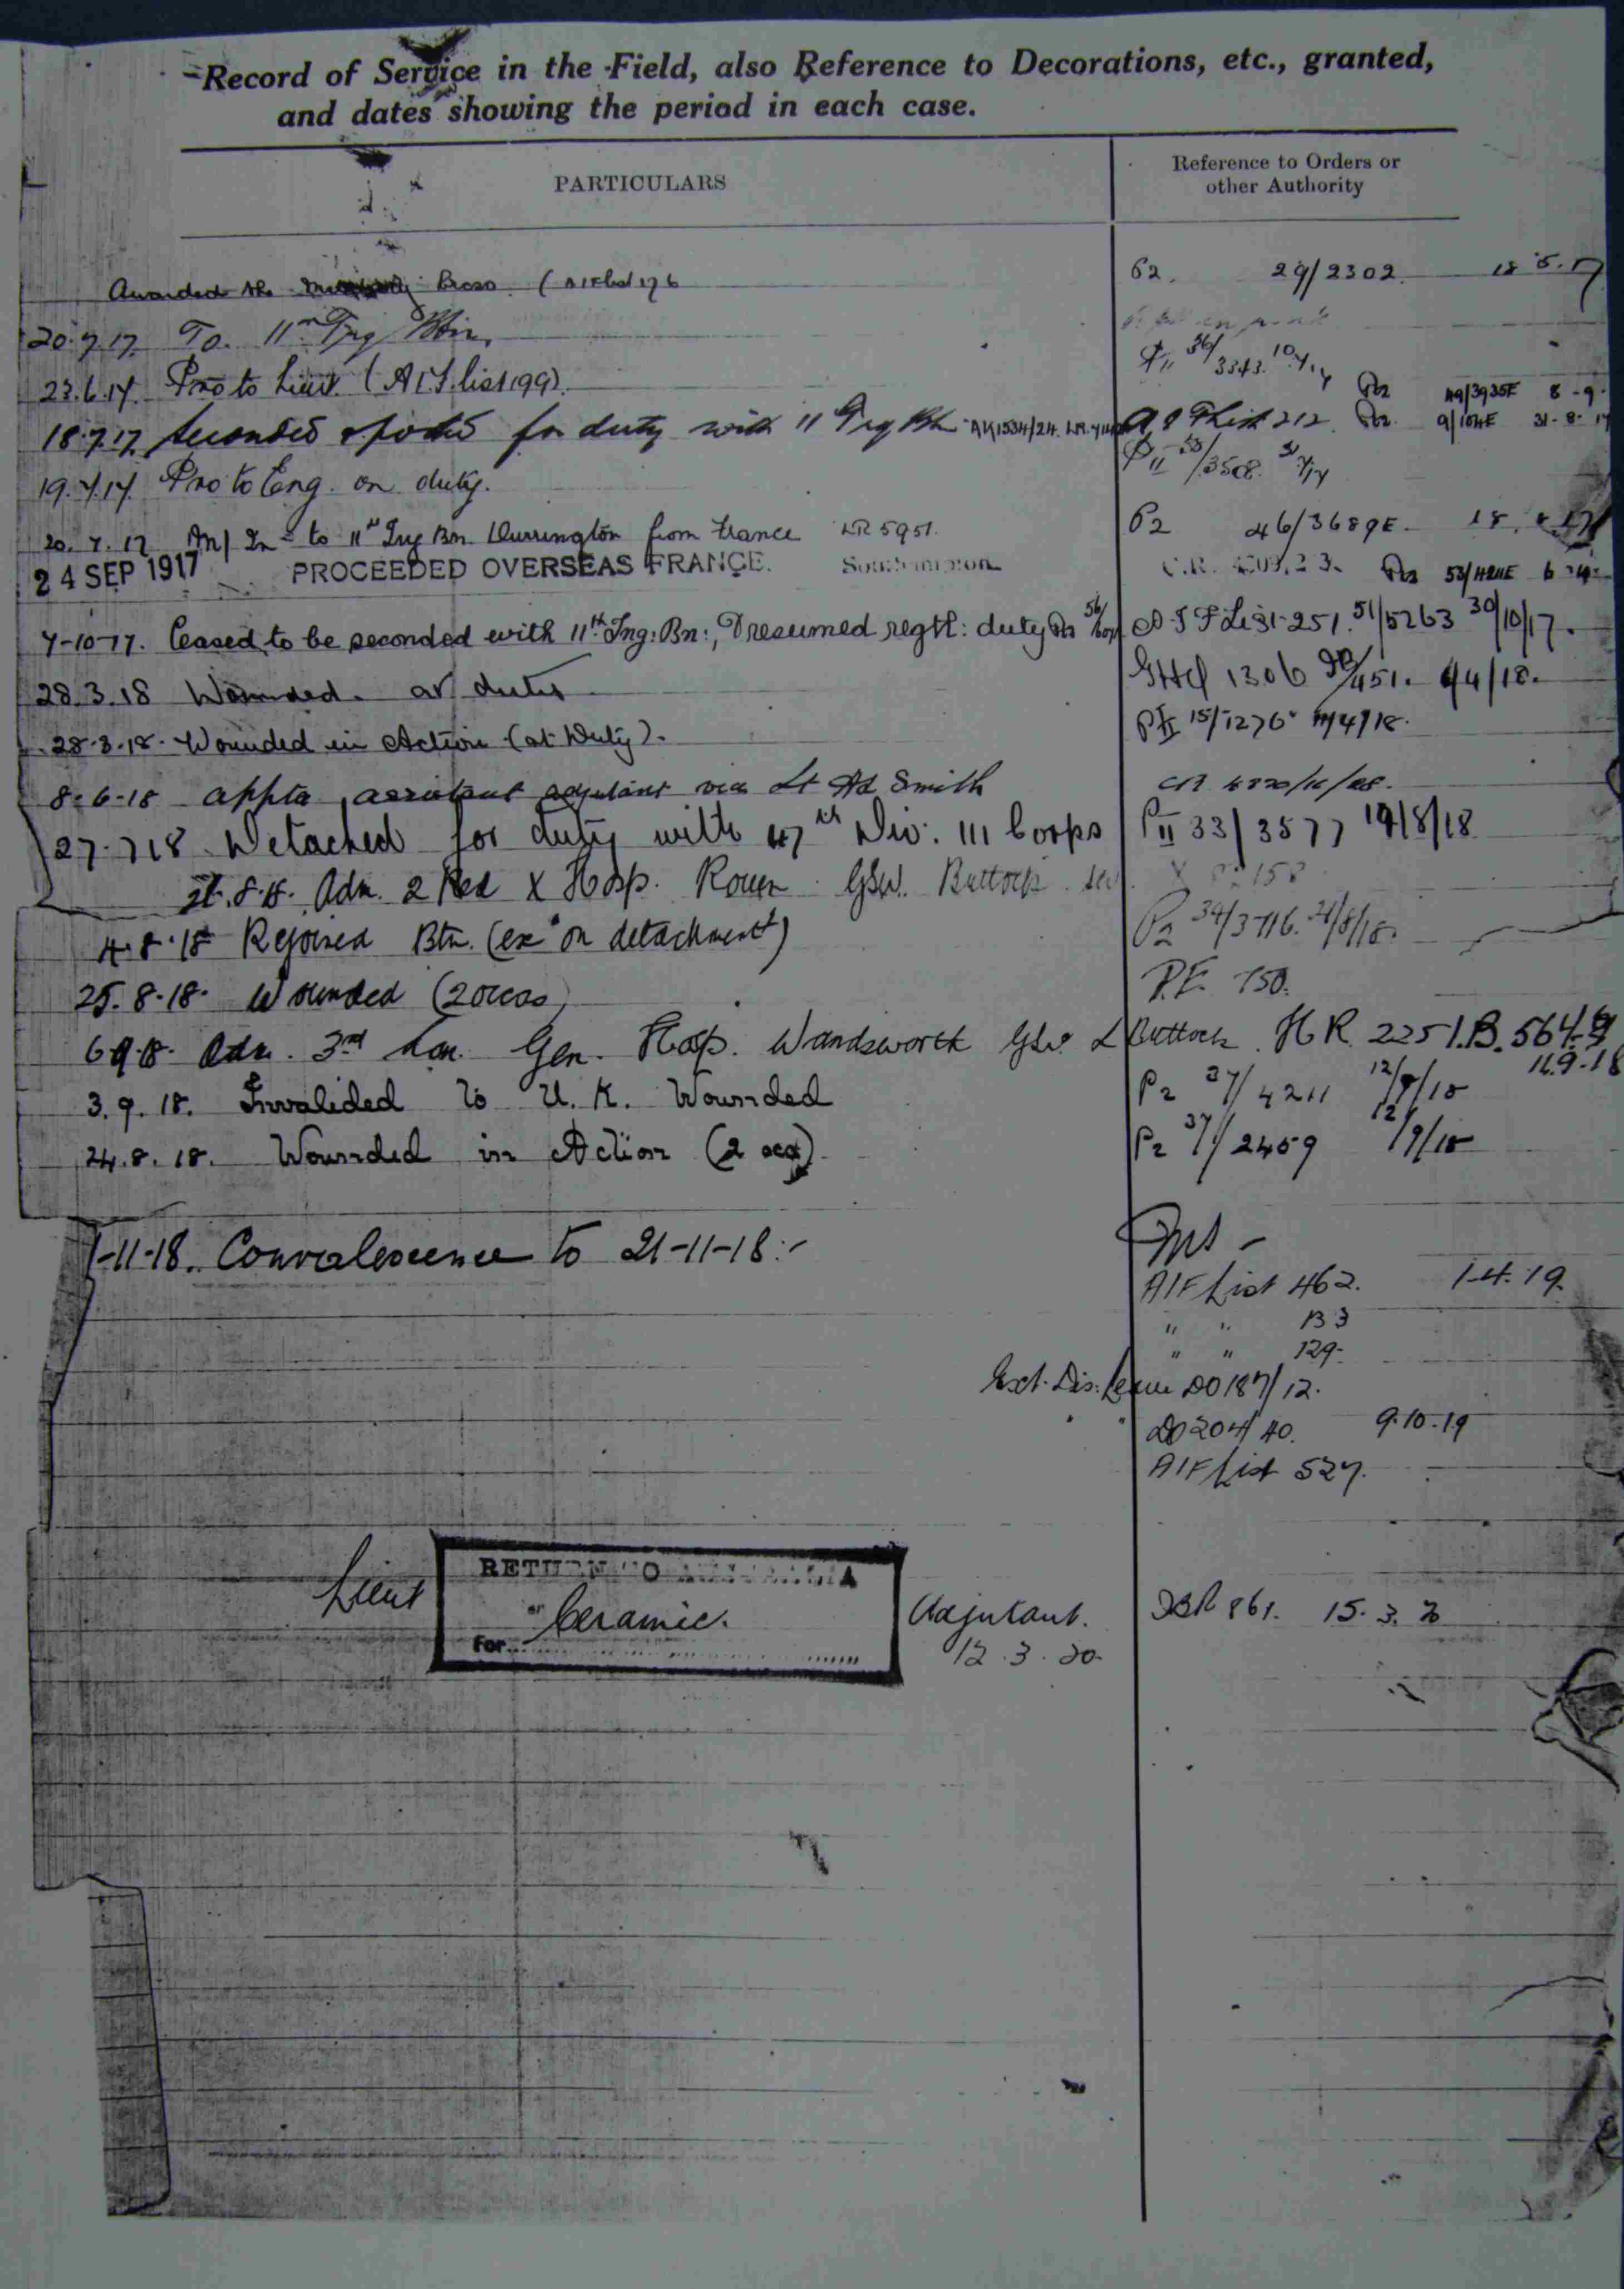 Record of Service in the Field, also Reference to Decorations, etc., granted,
and dates showing the period in each case.
PARTICULARS
Reference to Orders or
other Authority
Awarded the Military Cross (AIF list 176 P2. 29/2302. 18.5.17
20.7.17. To. 11th Trg Btn.
23.6.17. Pro to Lieut. (AIF. list 199). PII 36/3343. 10.7.17 P2 49/3935E 8-9-
18.7.17 Seconded & posted for duty with 11 Trg Bn AK1534/24. AIF list 212. P2 9/104E 31-8-17
19.7.17. Pro to Eng. on duty. PII /3508. 31/7/17
20.7.17 M/In to 11th Trg Bn. Durrington from France LR 5951. P2 46/3689E. 18.8.17
24 SEP 1917 PROCEEDED OVERSEAS FRANCE. Southampton P2 53/4211E
7-10-17. Ceased to be seconded with 11th Trng: Bn:, & resumed regtl: duty P2 56/ A.I.F List 251. 51/5263 30/10/17.
28.3.18 Wounded. at duty GHQ 1306 /451. 4/4/18.
28.3.18. Wounded in Action (at Duty). PII 15/1276 11/4/18.
8-6-18 appta assistant adjutant vice Lt Ad Smith
27.7.18 Detached for duty with 47th Div. III Corps PII 33/3577 19/8/18
8.18. Adm. 2 Red X Hosp. Rouen GSW. Buttock 158
4.8.18 Rejoined Btn. (ex on detachment) P2 34/3716. 21/8/18.
25.8.18. Wounded (2 occas) P.E. 750.
6.9.18. Adm. 3rd Lon. Gen. Hosp. Wandsworth GSW. L Buttock. H R 2251.B.
11.9.18
3.9.18. Invalided to U.K. Wounded P2 37/4211 12/9/18
24.8.18. Wounded in Action (2 occ) P2 37/2459 12/9/18
1-11-18. Convalescence to 21-11-18:-
AIF List 462. 1.4.19.
" " 133
" " 129.
Ext. Dis. Leave DO 187/12.
" " DO 204/40. 9.10.19
AIF List 527.
RETURN TO AUSTRALIA
Lieut Ceramic. Adjutant. DBR 861. 15.3.20
For 12.3.20.